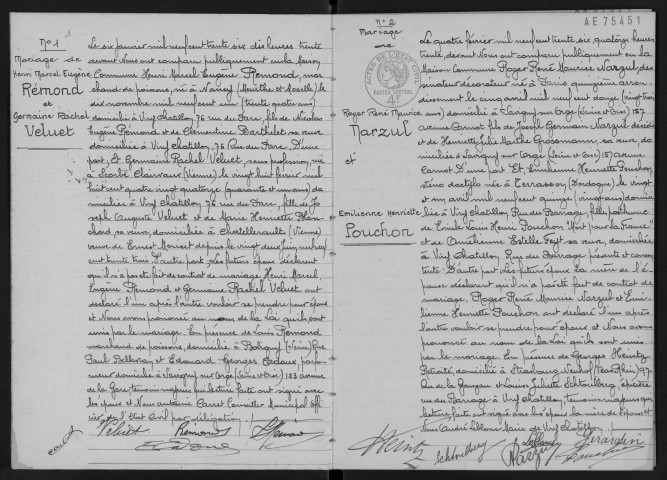 N° 1
Mariage de
Henri Marcel Eugène
Rémond
et
Germaine Rachel
Veluet
Le six janvier mil neuf cent trente six dix heures trente
devant Nous ont comparu publiquement en la Maison
Commune Henri Marcel Eugène Rémond, mar
chand de poissons, né à Nancy (Meurthe et Moselle) le
dix novembre mil neuf cent un (trente quatre ans)
domicilié à Viry Chatillon 76 rue du Parc, fils de Nicolas
Eugène Rémond et de Clémentine Barthelet sa veuve
domiciliée à Viry Chatillon, 76 Rue du Parc. D'une
part, Et Germaine Rachel Veluet, sans profession, née
à Clairvaux (Vienne) le vingt huit février mil
huit cent quatre vingt quatorze (quarante et un ans) do
miciliée à Viry Chatillon 76 rue du Parc, fille de Jo
seph Auguste Veluet et de Marie Henriette Blan
chard, sa veuve, domiciliée à Chatellerault (Vienne)
veuve de Ernest depuis le vingt deux Juin mil neuf
cent trente trois D'autre part. Les futurs époux déclarent
qu'il n'a pas été fait de contrat de mariage. Henri Marcel
Eugène Rémond et Germaine Rachel Veluet ont
déclaré l'un après l'autre vouloir se prendre pour époux
et Nous avons prononcé au nom de la Loi qu'ils sont
unis par le mariage. En présence de Louis Rémond
marchand de poissons, domicilié à Bobigny (Seine) Rue
Paul et Edouard Georges
domicilié à Savigny sur Orge (Seine et Oise) 183 avenue
de la Gare témoins majeurs qui lecture faite ont signé avec
les époux et Nous Antoine Conseiller Municipal Offi
cier de l'Etat Civil par délégation.
Veluet Rémond
N° 2
Mariage
AE75451
ACTES DE L'ETAT CIVIL
PAPIER SPECIAL
4F
Roger René Maurice
Narzul
et
Emilienne Henriette
Pouchon
Le quatre février mil neuf cent trente six, quatorze heures
trente, devant Nous ont comparu publiquement en la
Maison Commune Roger René Maurice Narzul, des
sinateur décorateur né à Paris quinzième arron
dissement le cinq avril mil neuf cent douze (vingt trois
ans) domicilié à Savigny sur Orge (Seine et Oise) 157
avenue Carnot fils de Joseph Germain Narzul décédé
et de Henriette Julie Marthe Grossmann, sa veuve, do
miciliée à Savigny sur Orge (Seine et Oise) 157 avenue
Carnot. D'une part Et, Emilienne Henriette Pouchon,
sténo dactylo née à Terrasson (Dordogne) le vingt
et un avril mil neuf cent quinze (vingt ans) domici
liée à Viry Chatillon Rue du Barrage, fille posthume
de Emile Louis Henri Pouchon "Mort pour la France"
et de Estelle sa veuve, domiciliée
à Viry Chatillon Rue du Barrage présente et consen
tante. D'autre part. Les futurs époux la mère de l'é
pouse déclarent qu'il n'a pas été fait de contrat de
mariage. Roger René Maurice Narzul et Emi
lienne Henriette Pouchon ont déclaré l'un après
l'autre vouloir se prendre pour époux et Nous avons
prononcé au nom de la Loi qu'ils sont unis
par le mariage. En présence de Georges Heintz
domicilié à Strasbourg Neuhof (Bas Rhin) 97
Rue de la Ganzau et Louise Juliette
rue du Barrage à Viry Chatillon, témoins majeurs qui
lecture faite ont signé avec les époux la mère de l'épouse et
Nous André Leblanc Maire de Viry Chatillon.
Heintz Leblanc Girardin
Narzul Pouchon